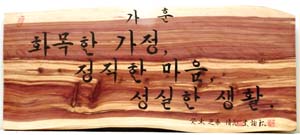 가 훈
화목한 가정,
정직한 마음,
성실한 생활.